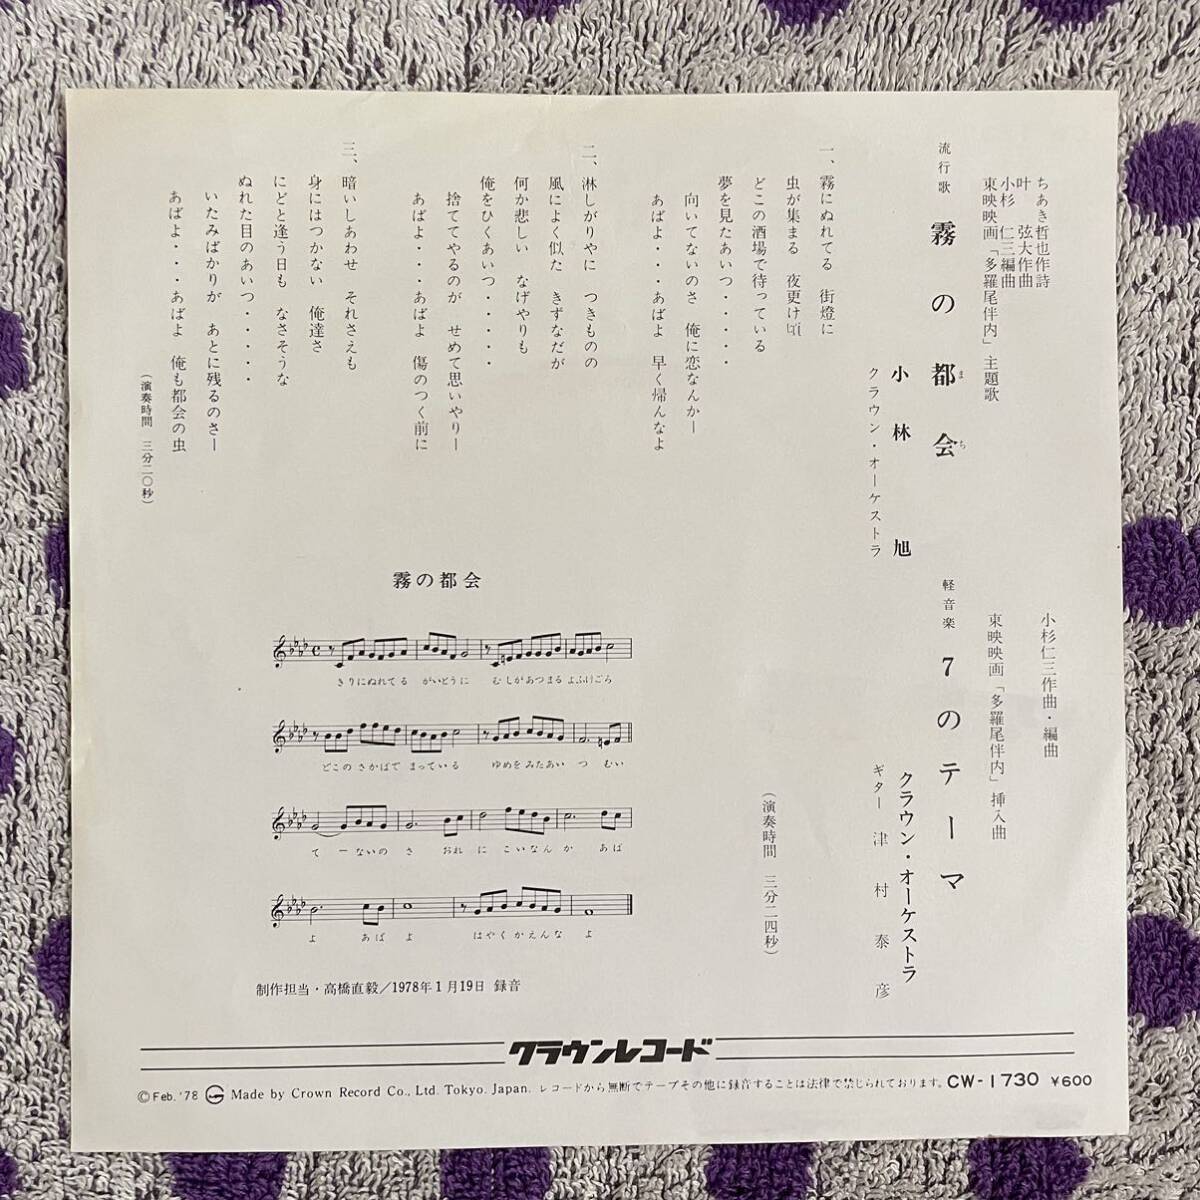 ちあき哲也作詩
叶弦大作曲
小杉仁三編曲
東映映画「多羅尾伴内」主題歌
流行歌 霧の都会
まち
小林旭
クラウン・オーケストラ
一、霧にぬれてる 街燈に
虫が集まる 夜更け頃
どこの酒場で待っている
夢を見たあいつ・・・・・
向いてないのさ 俺に恋なんかー
あばよ・・・あばよ 早く帰んなよ
二、淋しがりやに つきものの
風によく似た きずなだが
何か悲しい なげやりも
俺をひくあいつ・・・・・
捨ててやるのが せめて思いやりー
あばよ・・・あばよ 傷のつく前に
三、暗いしあわせ それさえも
身にはつかない 俺達さ
にどと逢う日も なさそうな
ぬれた目のあいつ・・・・・
いたみばかりが あとに残るのさー
あばよ・・・あばよ 俺も都会の虫
(演奏時間 三分二〇秒)
小杉仁三作曲・編曲
東映映画「多羅尾伴内」挿入曲
軽音楽 7のテーマ
クラウン・オーケストラ
ギター 津村泰彦
(演奏時間 三分二四秒)
霧の都会
きりにぬれてる がいとうに むしがあつまる よふけごろ
どこのさかばで まっている ゆめをみたあい つ むい
て ーないの さ おれ に こいなんか あば
よ あば よ はやくかえんな よ
制作担当・高橋直毅/1978年1月19日 録音
クラウンレコード
©Feb.'78 Made by Crown Record Co., Ltd. Tokyo. Japan. レコードから無断でテープその他に録音することは法律で禁じられております。 CW-1730 ¥600